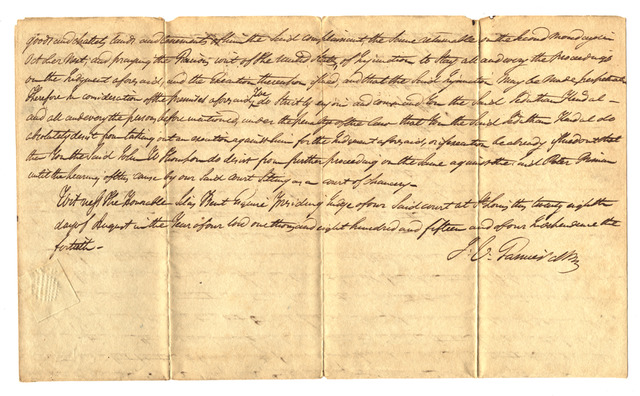 goods and chattels lands and tenements of him the said complainant, the same returnable on the second monday in
October Next, and praying the Peoples writ of the United States of Injunction to Stay all and every the Proceedings
on the Judgment aforesaid, and the Execution thereupon issued, and that the Same Injunction May be made perpetual
Therefore in consideration of the premises aforesaid, do Strictly enjoin and command You the Said
and all and every the persons before mentioned, under the penalty of the Law that You the Said do
absolutely desist from taking out an execution against him for the Judgment aforesaid, or if execution be already issued out that
the You the Said John do desist from further proceeding on the Same against the said Peter
until the hearing of the cause by our Said court Sitting as a court of chancery
Witness the Honorable Silas Bent Esquire Presiding Judge of our Said court at St Louis this twenty eighth
day of August in the Year of our lord one thousand eight hundred and fifteen and of our Independence the
fortieth -